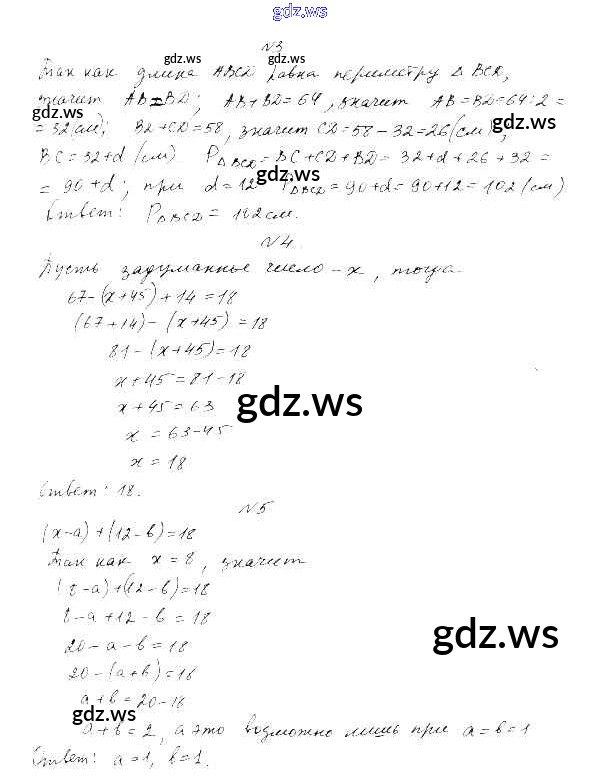 gdz.ws
N3
gdz.ws gdz.ws
Так как длина ABCD равна периметру Δ BCD,
значит AB=BD; AB+BD=64, значит AB=BD=64:2=
gdz.ws gdz.ws
=32(см); BD+CD=58, значит CD=58-32=26(см),
BC=32+d (см) PΔBCD=BC+CD+BD=32+d+26+32=
gdz.ws
=90+d; при d=12 PΔBCD=90+d=90+12=102(см)
Ответ: PΔBCD=102см.
N4.
Пусть задуманное число-x, тогда
67-(x+45)+14=18
(67+14)-(x+45)=18
81-(x+45)=18
x+45=81-18
x+45=63
gdz.ws
x=63-45
x=18
Ответ: 18.
N5
(x-a)+(12-b)=18
Так как x=8, значит
(8-a)+(12-b)=18
8-a+12-b=18
gdz.ws
20-a-b=18
20-(a+b)=18
a+b=20-18
gdz.ws
a+b=2, а это возможно лишь при a=b=1
Ответ: a=1, b=1.
gdz.ws